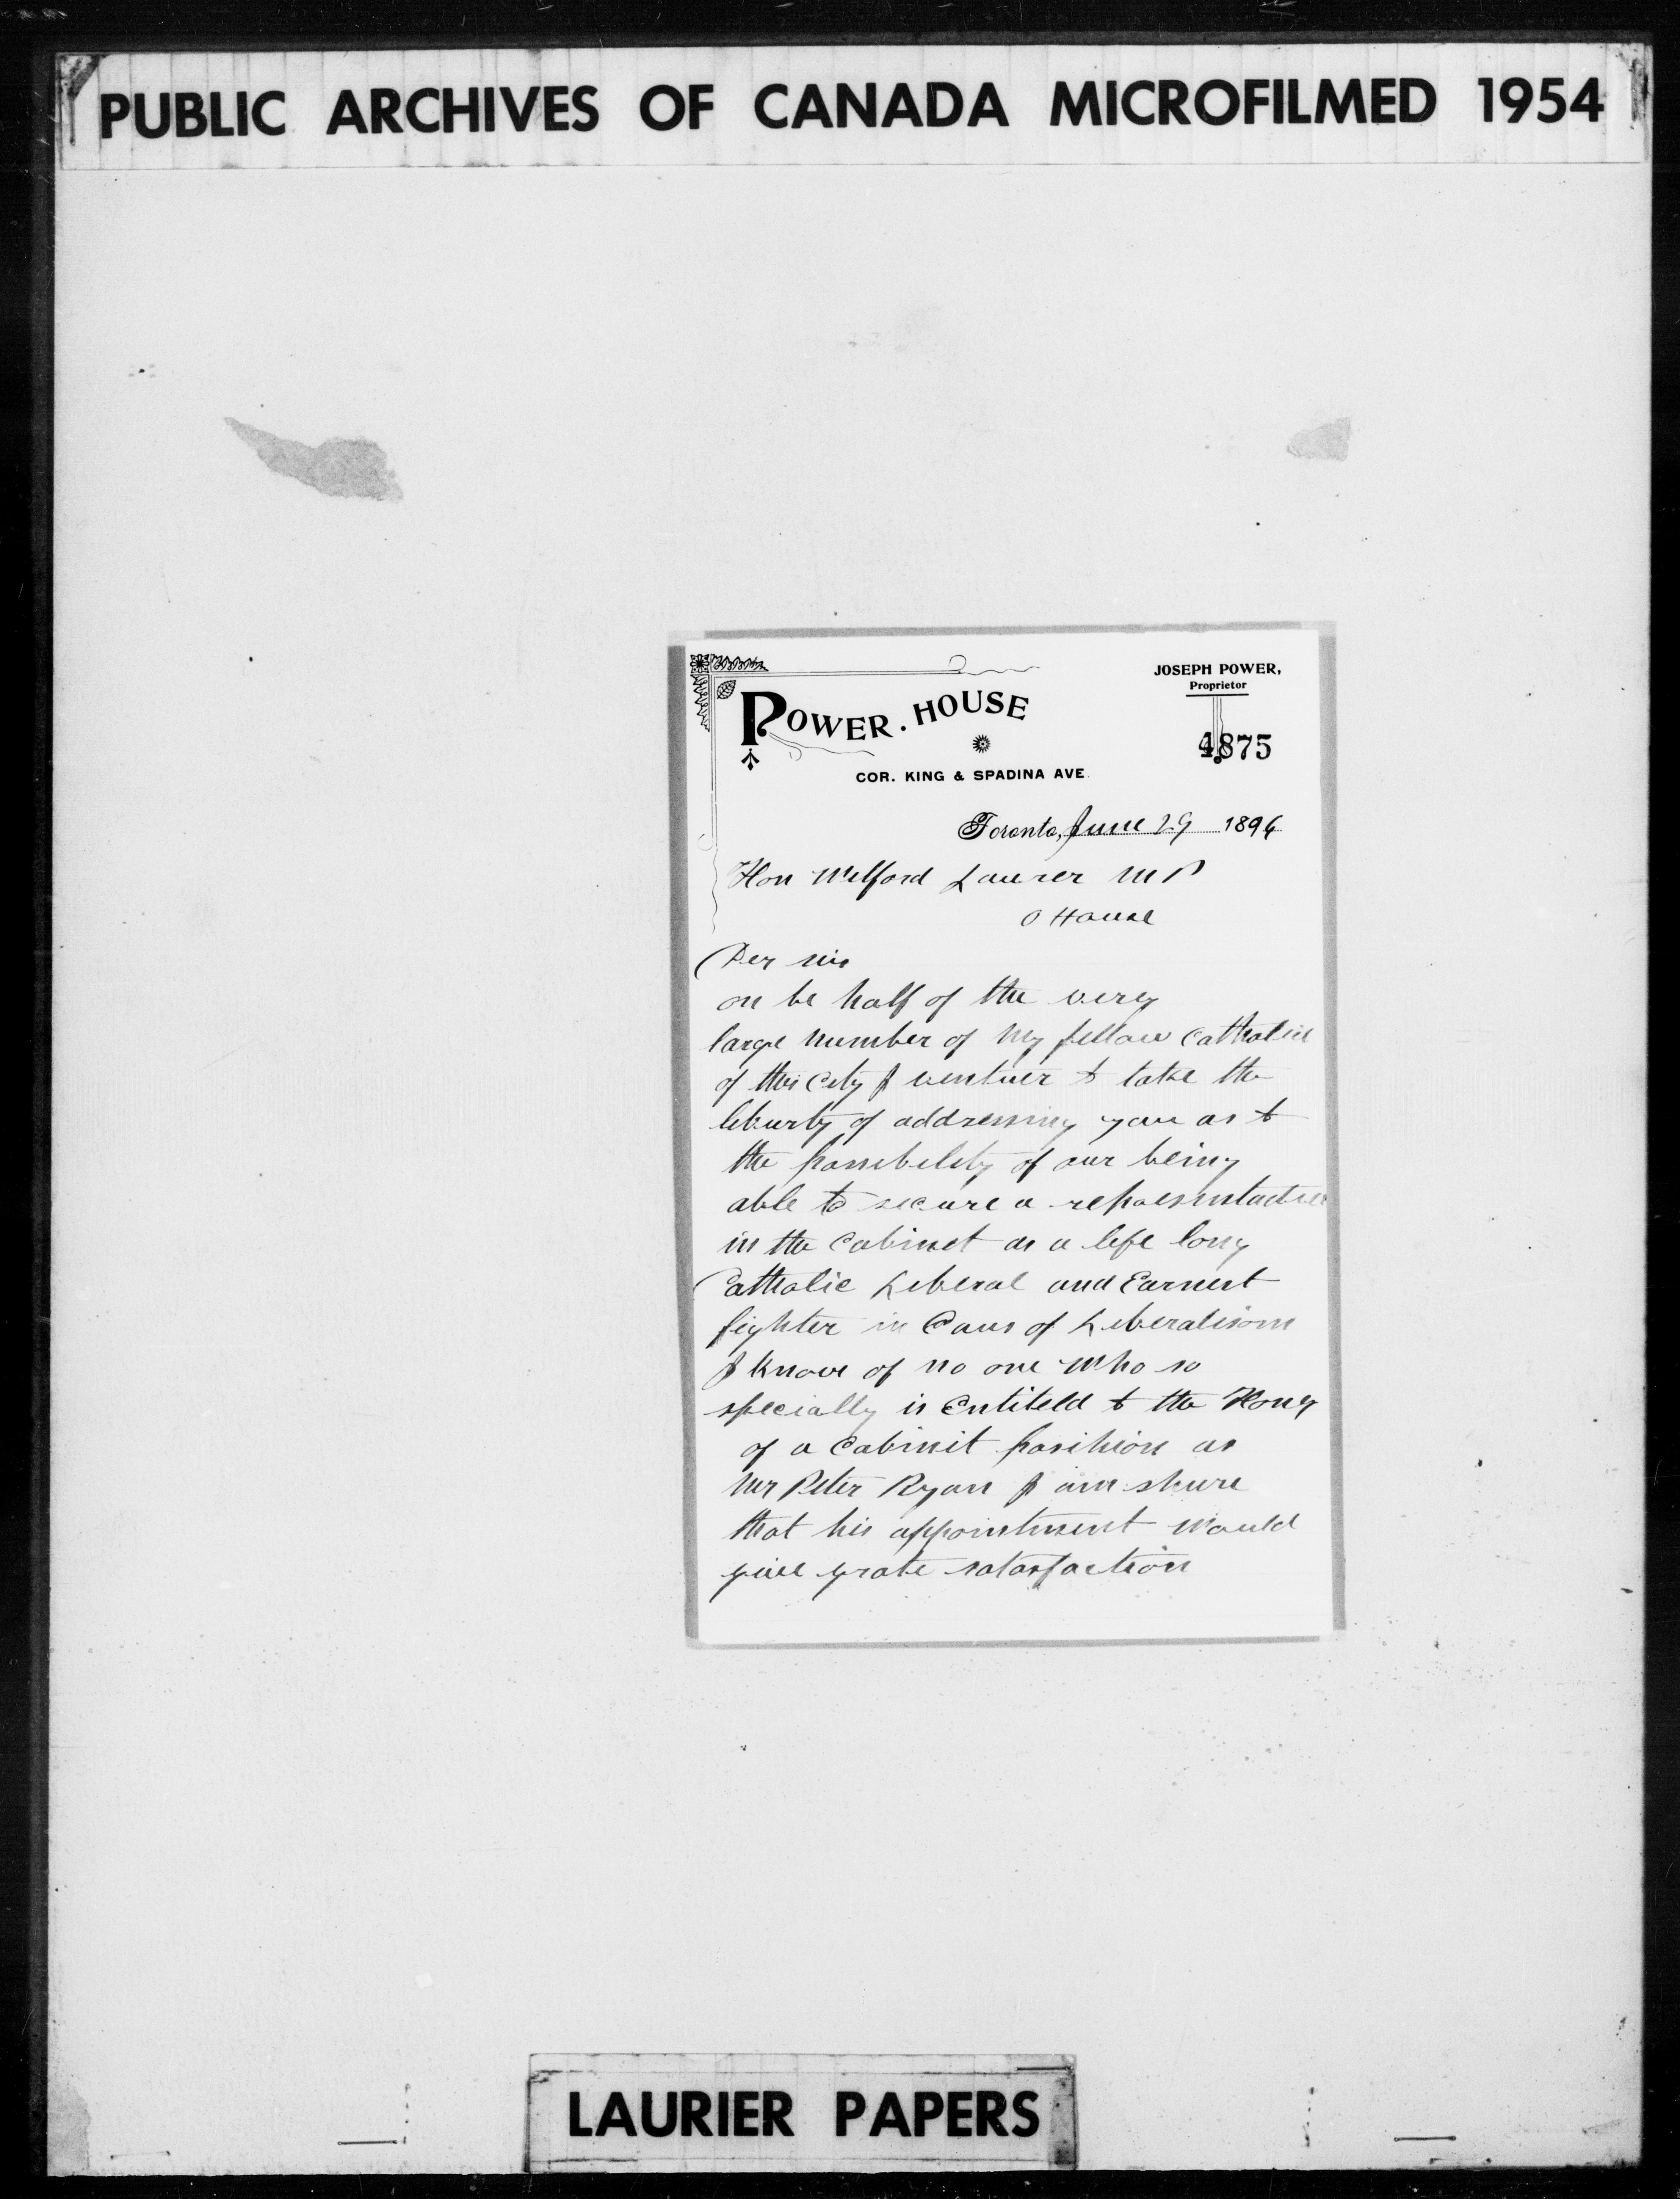 PUBLIC ARCHIVES OF CANADA MICROFILMED 1954
JOSEPH POWER,
Proprietor
POWER. HOUSE
4875
COR. KING & SPADINA AVE.
Toronto, June 29 1896
Hon Wilford Laurer MP
Ottawa
Der sir
on be half of the very
large number of my fellow Catholic
of this City I ventuer to take the
liburty of addressing you as to
the possibility of our being
able to secure a
in the Cabinet as a life long
Catholic Liberal and Earnest
fighter in Caus of Liberalism
I know of no one who so
specially is Entiteld to the
of a Cabinit position as
Mr Peter Ryan I am shure
that his appointment would
give grate satasfaction
LAURIER PAPERS